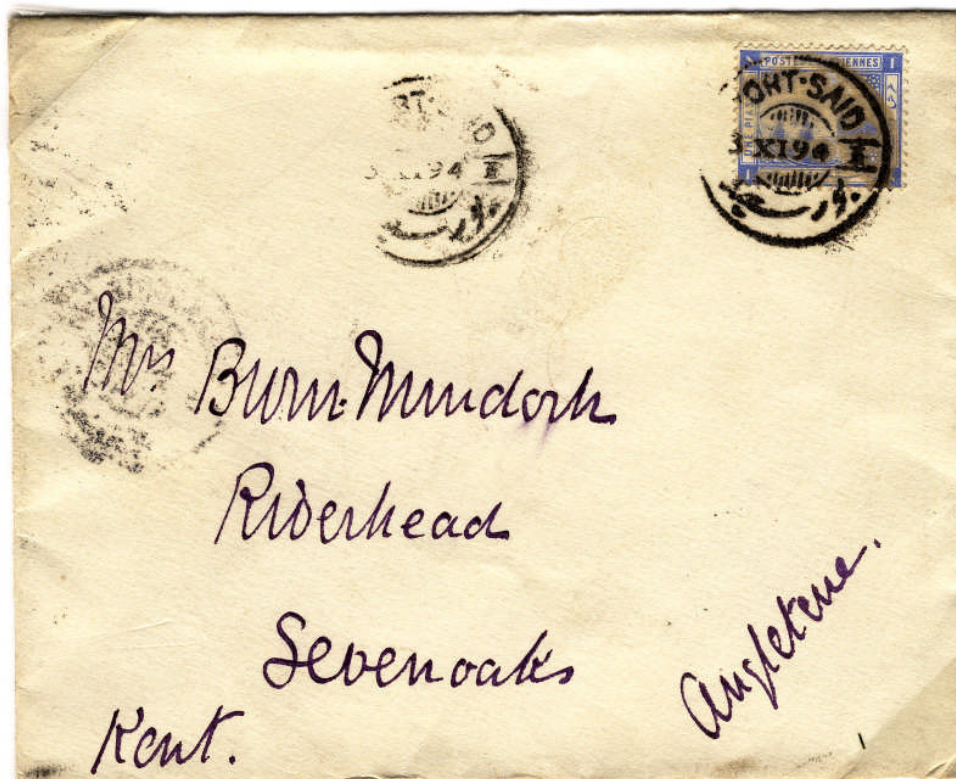 POSTES
1
1
PORT-SAID
3 XI 94
3 XI 94
Mrs Burn-Murdoch
Riverhead
Sevenoaks
Kent.
Angleterre.